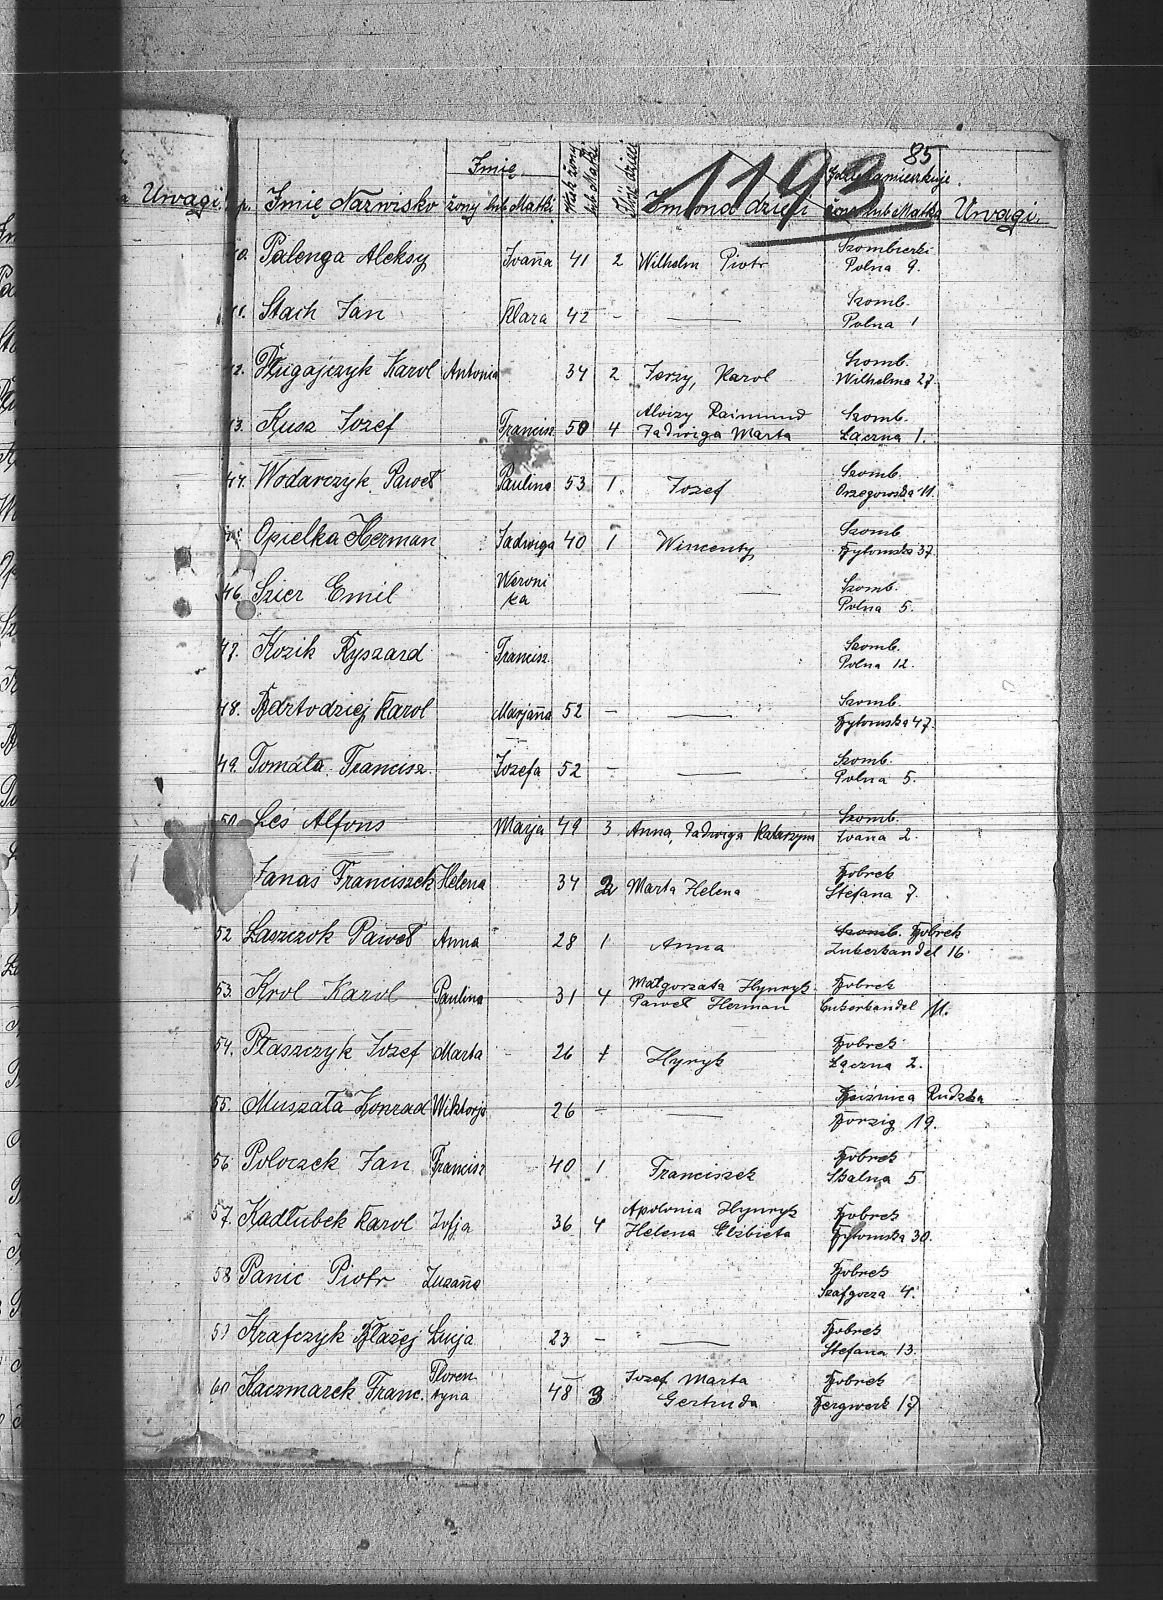 85
1193
Imię
Uwagi. Lp. Imię Nazwisko żony lub Matki Wiek żony lub Matki Ilość dzieci Imiona dzieci Gdzie zamieszkuje żona lub Matka Uwagi.
40. Palenga Aleksy Joanna 41 2 Wilhelm Piotr Szombierki
Polna 9.
41. Stach Jan Klara 42 — — Szomb.
Polna 1
42. Długajczyk Karol Antonia 34 2 Jerzy, Karol Szomb.
Wilhelma 27.
43. Kusz Jozef Francisz 50 4 Aloizy Raimund Szomb.
Jadwiga Marta Łaczna 1.
44. Wodarczyk Paweł Paulina 53 1. Jozef Szomb.
Orzegowska 11.
45. Opielka Herman Jadwiga 40 1 Wincenty Szomb
Bytomska 37.
46. Szier Emil Weroni — Szomb.
ka Polna 5.
47. Kozik Ryszard Francisz. Szomb.
Polna 12.
48. Karol Marjanna 52 — — Szomb.
Bytomska 47.
49. Tomala Francisz. Jozefa 52 — — Szomb.
Polna 5.
50. Leś Alfons Marja 49 3 Anna, Jadwiga Katarzyna Szomb.
Ivana 2.
Janas Franciszek Helena 34 2 Marta, Helena Bobrek
Stefana 7.
52 Łaszczok Paweł Anna 28 1 Anna Szomb. Bobrek
Zukerhandel 16.
53. Krol Karol Paulina 31 4 Małgorzata Hynryk Bobrek
Paweł Herman Cukerhandel 11.
54. Płaszczyk Jozef Marta 26 1 Hynryk Bobrek
Łączna 2.
55. Muszała Konrad Wiktorja 26 — — Rudzka
Borzig 19.
56 Poloczek Jan Francisz 40 1 Franciszek Bobrek
Skalna 5
57. Kadłubek Karol Zofja 36 4 Apolonia Hynryk Bobrek
Helena Elżbieta Bytomska 30.
58 Panic Piotr Zuzanna Bobrek
Szafgocza 4.
59 Krafczyk Błażej Łucja 23 — — Bobrek
Stefana 13.
60 Kaczmarek Franc. Floren- 48 3 Jozef Marta Bobrek
tyna Gertruda Bergwerk 17